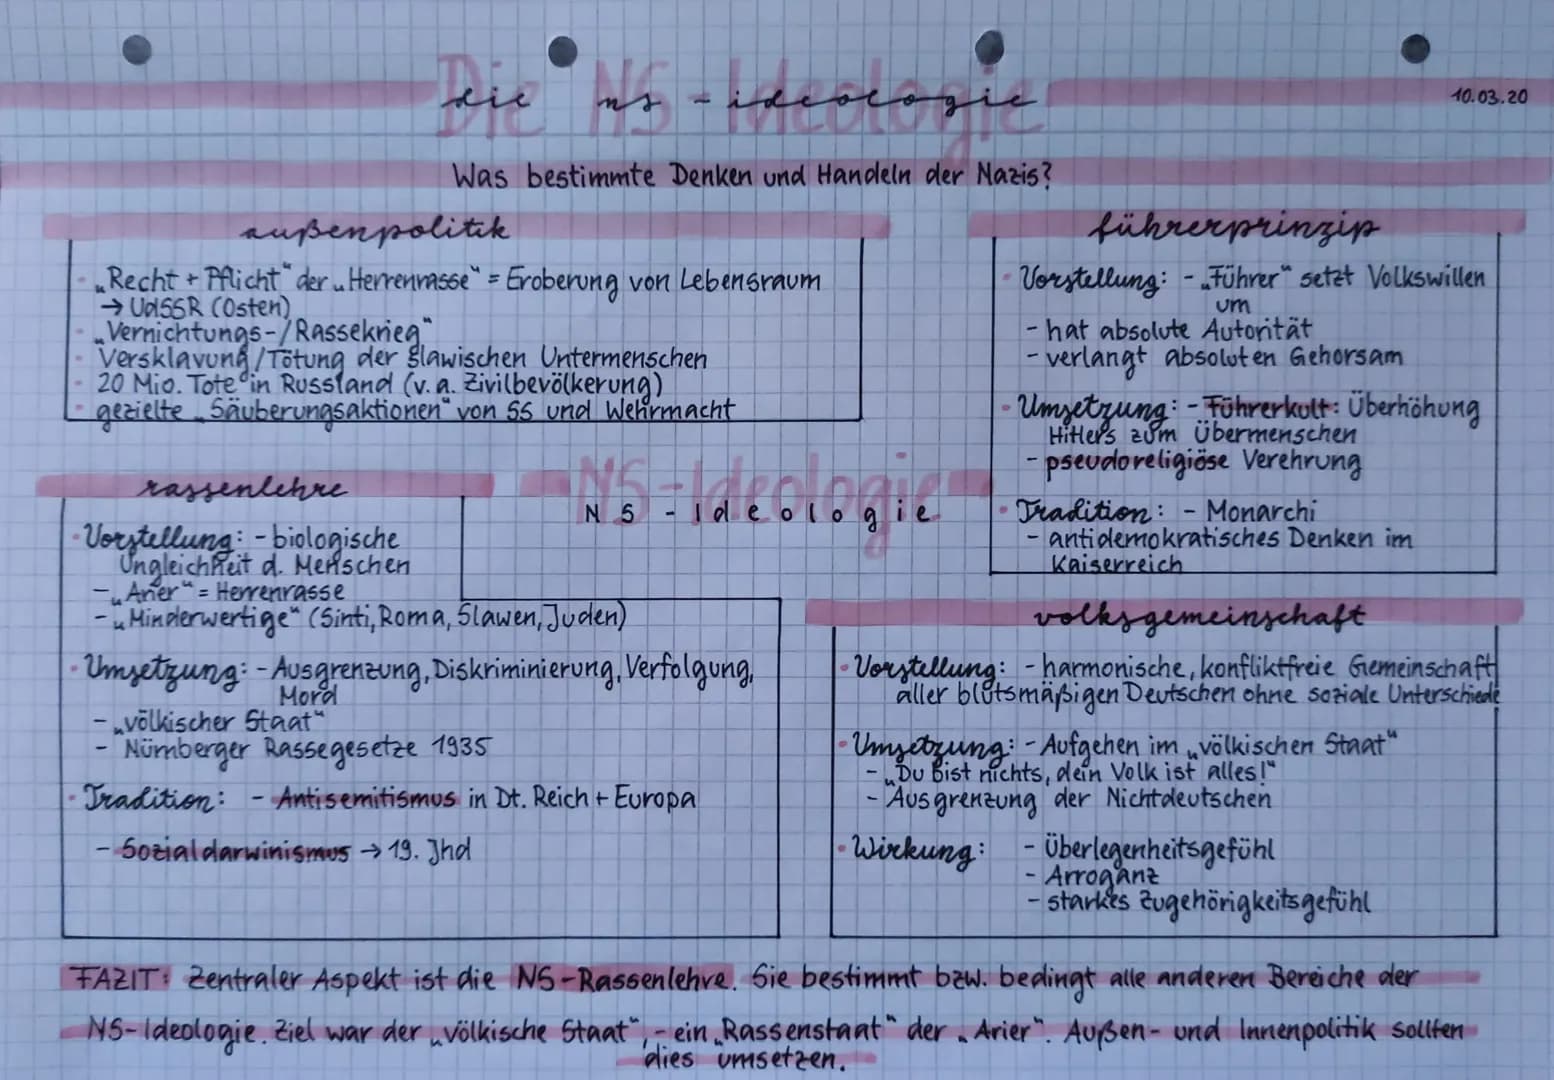 Die NS-Ideologie
die ns - ideologie
10.03.20
Was bestimmte Denken und Handeln der Nazis?
außenpolitik
• „Recht + Pflicht" der „Herrenrasse" = Eroberung von Lebensraum
→ UdSSR (Osten)
• „Vernichtungs-/Rassekrieg"
• Versklavung/Tötung der slawischen Untermenschen
• 20 Mio. Tote in Russland (v.a. Zivilbevölkerung)
• gezielte „Säuberungsaktionen" von SS und Wehrmacht
führerprinzip
• Vorstellung: - „Führer" setzt Volkswillen
um
- hat absolute Autorität
- verlangt absoluten Gehorsam
• Umsetzung: - Führerkult: Überhöhung
Hitlers zum Übermenschen
- pseudoreligiöse Verehrung
• Tradition: - Monarchi
- antidemokratisches Denken im
Kaiserreich
NS-Ideologie
NS - Ideologie
rassenlehre
• Vorstellung: - biologische
Ungleichheit d. Menschen
- „Arier" = Herrenrasse
- „Minderwertige" (Sinti, Roma, Slawen, Juden)
• Umsetzung: - Ausgrenzung, Diskriminierung, Verfolgung,
Mord
- „völkischer Staat"
- Nürnberger Rassegesetze 1935
• Tradition: - Antisemitismus in Dt. Reich + Europa
- Sozialdarwinismus → 19. Jhd
volksgemeinschaft
• Vorstellung: - harmonische, konfliktfreie Gemeinschaft
aller blutsmäßigen Deutschen ohne soziale Unterschiede
• Umsetzung: - Aufgehen im „völkischen Staat"
- „Du bist nichts, dein Volk ist alles!"
- Ausgrenzung der Nichtdeutschen
• Wirkung: - Überlegenheitsgefühl
- Arroganz
- starkes Zugehörigkeitsgefühl
FAZIT: Zentraler Aspekt ist die NS-Rassenlehre. Sie bestimmt bzw. bedingt alle anderen Bereiche der
NS-Ideologie. Ziel war der „völkische Staat", - ein „Rassenstaat" der „Arier". Außen- und Innenpolitik sollten
dies umsetzen.